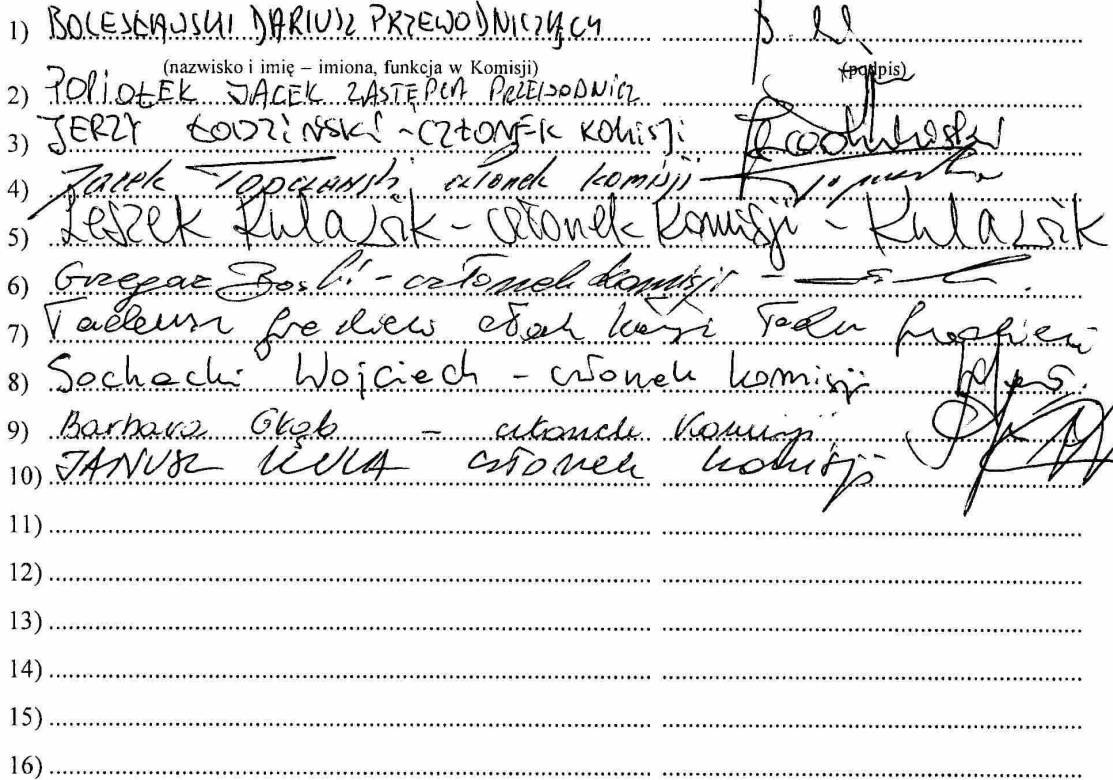 1) BOLESŁAWSKI DARIUSZ PRZEWODNICZĄCY
(nazwisko i imię – imiona, funkcja w Komisji) (podpis)
2) POPIOŁEK JACEK ZASTĘPCA PRZEWODNICZ
3) JERZY ŁODZIŃSKI - CZŁONEK KOMISJI
4) Jacek członek komisji
5) Leszek Kulasik - członek Komisji - Kulasik
6) Grzegorz - członek komisji -
7) Tadeusz
8) Sochacki Wojciech - członek komisji
9) Barbara Głąb - członek Komisji
10) JANUSZ KULA członek komisji
11)
12)
13)
14)
15)
16)